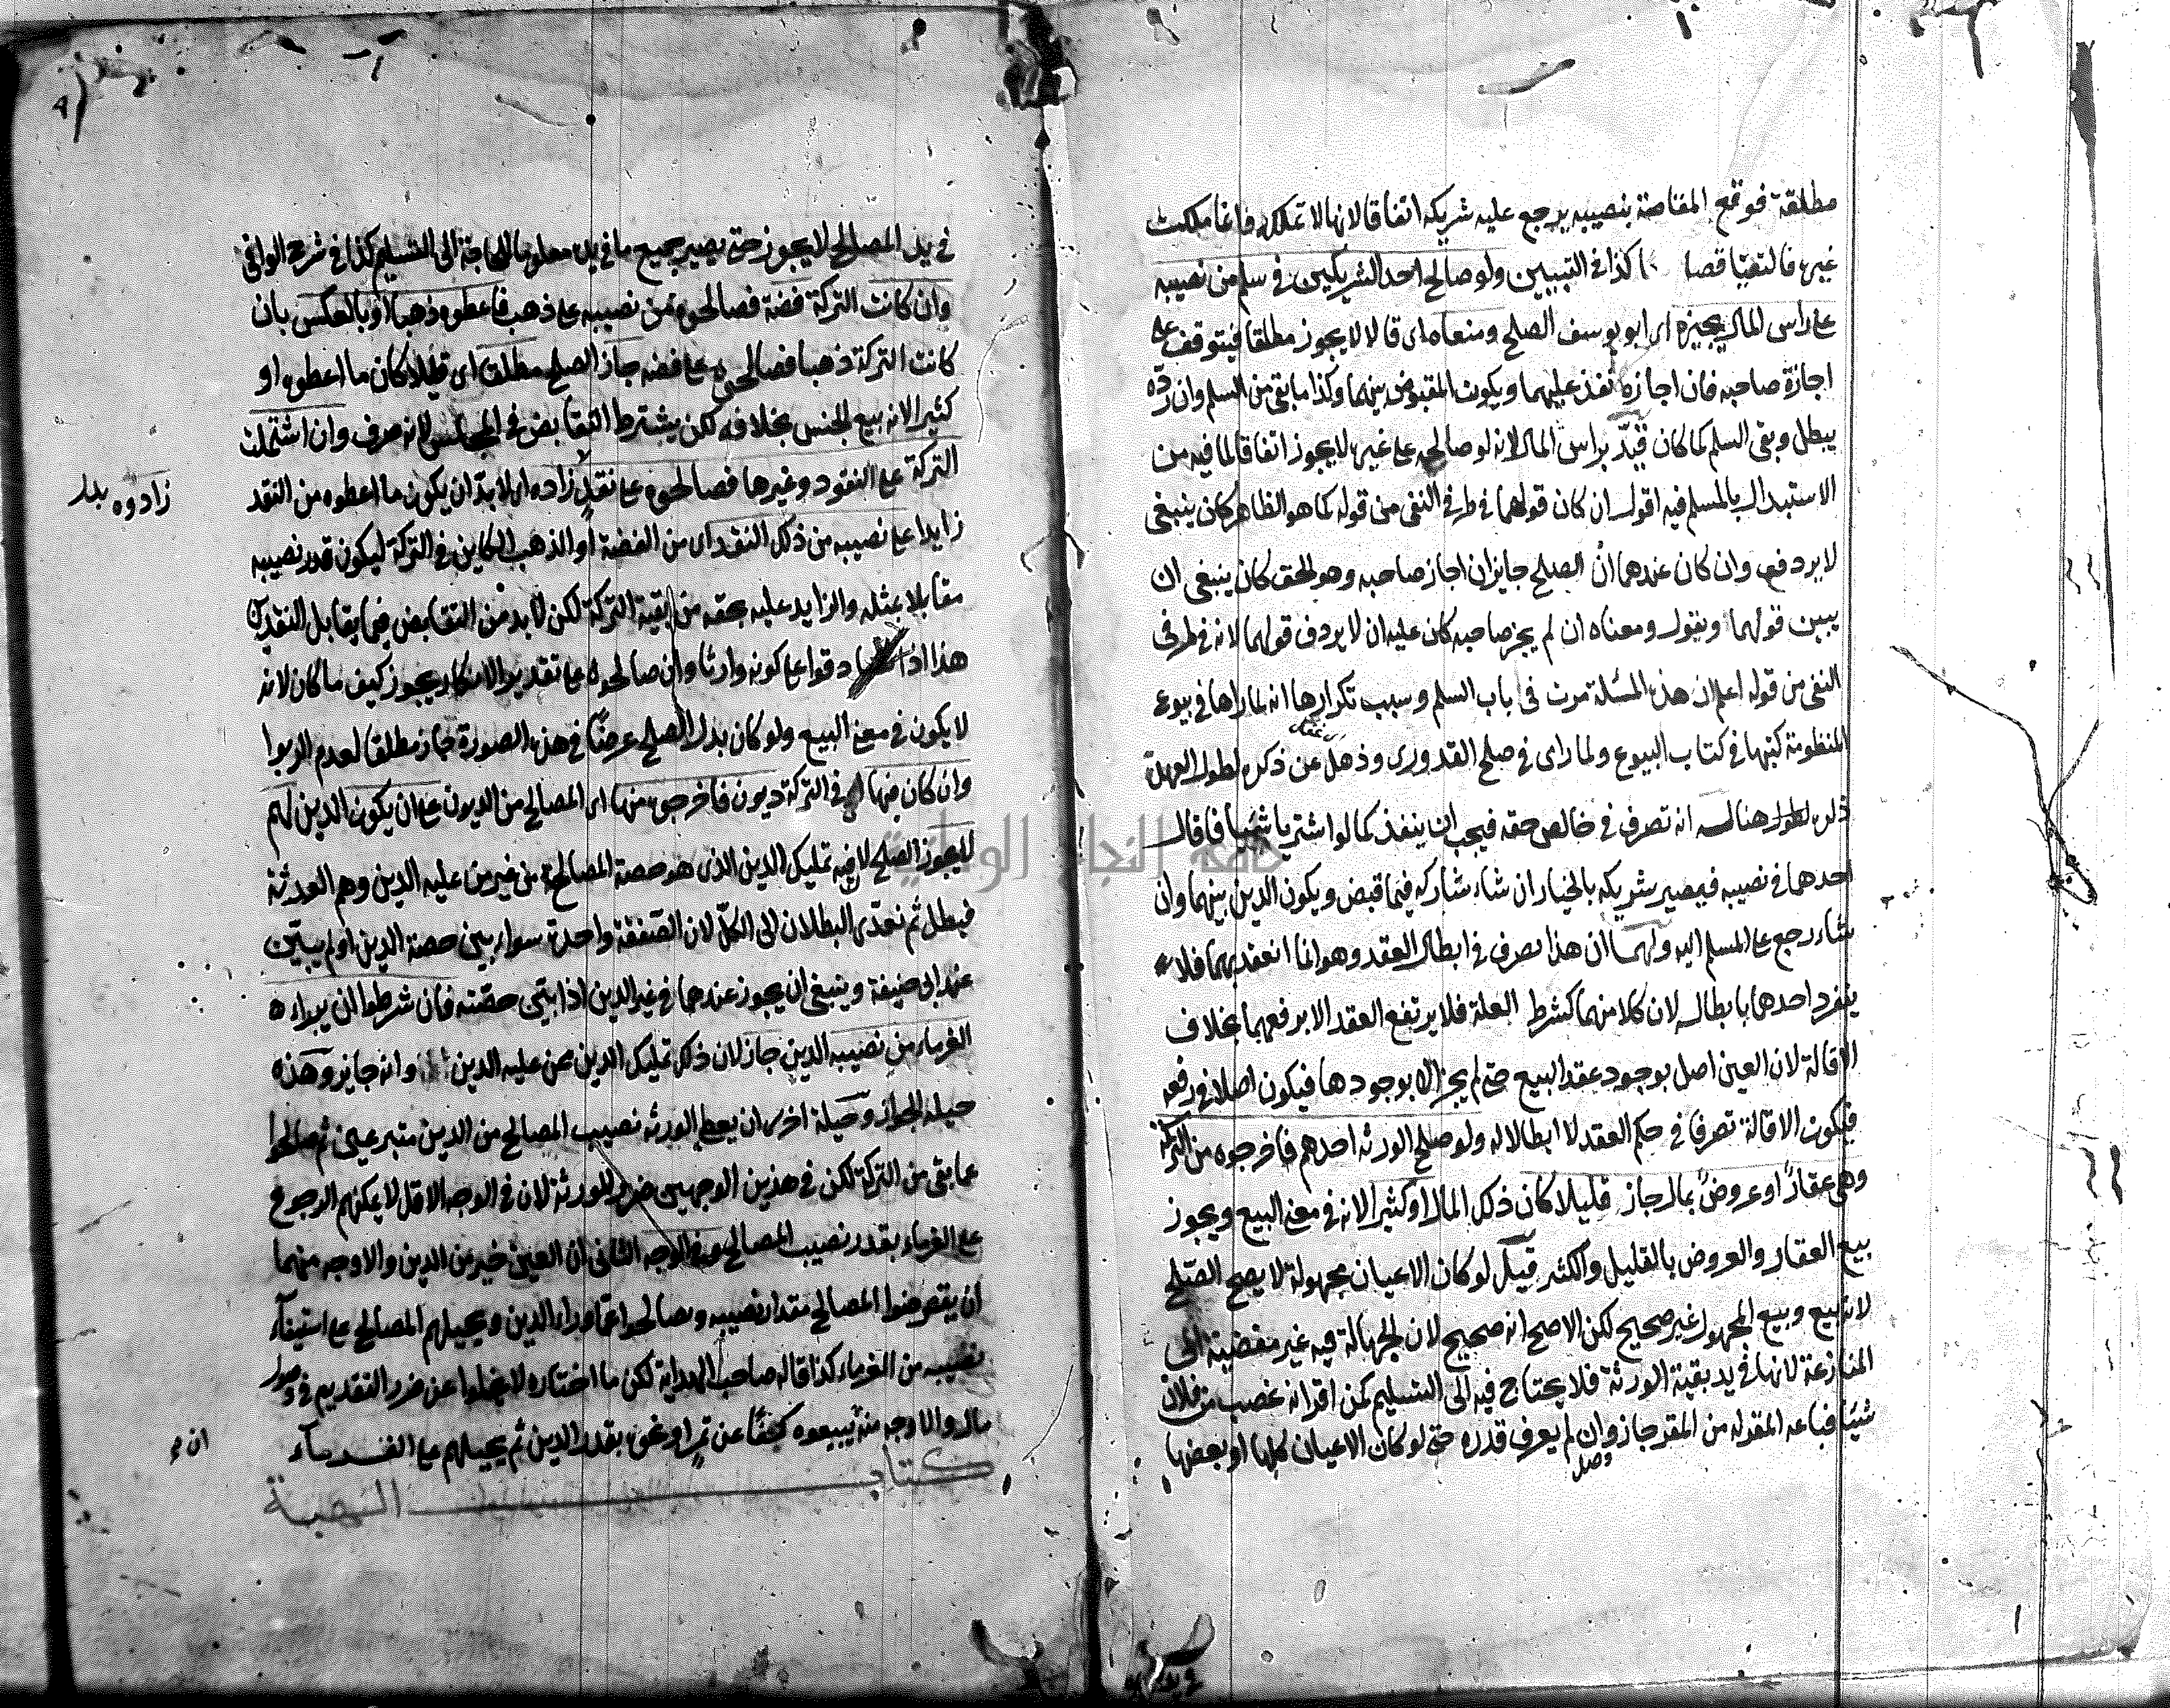 مطلقة فوقع المقاصة بنصيبه يرجع عليه شريكه اتفاقا لانها لا تملك فانما ملكت
غيره فالتقيا قصا كذا في التبيين ولو صالح احد الشريكين في سلم من نصيبه
على راس المال يجيزه اى ابو يوسف الصلح ومنعاه اى قالا لا يجوز مطلقا فيتوقف على
اجازة صاحبه فان اجازه نفذ عليهما ويكون المقبوض بينهما وكذا ما بقى من السلم وان رده
يبطل وبقى السلم كما كان قيد براس المال لانه لو صالحه على غيره لا يجوز اتفاقا لما فيه من
الاستبدال بالمسلم فيه اقول ان كان قولهما في طرفي النفى من قوله كما هو الظاهر كان ينبغى
لا يردفه وان كان عندهما ان الصلح جايز ان اجاز صاحبه وهو الحق كان ينبغى ان
يبين قولهما ويقول ومعناه ان لم يجز صاحبه كان عليه ان لا يردف قولهما لانه في طرفى
النفى من قوله اعلم ان هذه المسئلة مرت فى باب السلم وسبب تكرارها انه لما راها في بيوع
المنظومة كتبها في كتاب البيوع ولما راى في صلح القدورى وذهل عن ذكره لطول العهد
ذكره هنا له انه تصرف في خالص حقه فيجب ان ينفذ كما لو اشتريا شيئا فاقال
احدهما في نصيبه فيصير شريكه بالخيار ان شاء شاركه فيما قبض ويكون الدين بينهما وان
شاء رجع على المسلم اليه ولهما ان هذا تصرف في ابطال العقد وهو انما انعقد بهما فلا
ينفرد احدهما بابطاله لان كلا منهما كشرط العلة فلا يرتفع العقد الا برفعهما بخلاف
الاقالة لان العين اصل بوجود عقد البيع حتى لم يجز الا بوجودها فيكون اصلا في رفعه
فيكون الاقالة تصرفا في حكم العقد لا ابطالا له ولو صلح الورثه احدهم فاخرجوه من التركة
وهى عقار او عروض بمال جاز قليلا كان ذلك المال او كثيرا لانه في معنى البيع ويجوز
بيع العقار والعروض بالقليل والكثير قيل لو كان الاعيان مجهولة لا يصح الصلح
لانه بيع وبيع المجهول غير صحيح لكن الاصح انه صحيح لان الجهالة فيه غير مفضية الى
المنازعة لانها في يد بقية الورثة فلا يحتاج فيه الى التسليم كمن اقر انه غصب من فلان
شيئا فباعه المقر له من المقر جاز وان لم يعرف قدره حتى لو كان الاعيان كلها او بعضها
في يد المصالح لا يجوز حتى يصير جميع ما في يده معلوما للحاجة الى التسليم كذا في شرح الوافى
وان كانت التركة فضة فصالحوه من نصيبه على ذهب فاعطوه ذهبا او بالعكس بان
كانت التركة ذهبا فصالحوه على فضه جاز الصلح مطلقا اى قليلا كان ما اعطوه او
كثيرا لانه بيع الجنس بخلافه لكن يشترط التقابض في المجلس لانه صرف وان اشتملت
التركة على النقود وغيرها فصالحوه على نقد زاده اى لا بد ان يكون ما اعطوه من النقد
زادوه بدل
زايدا على نصيبه من ذلك النقد اى من الفضة او الذهب الكاين في التركة ليكون قدر نصيبه
مقابلا بمثله والزايد عليه بحقه من بقية التركة لكن لا بد من التقابض فيما يقابل النقدين
هذا اذا دقوا على كونه وارثا وان صالحوه على تقدير الانكار يجوز كيف ما كان لانه
لا يكون في معنى البيع ولو كان بدل الصلح عرضا في هذه الصورة جاز مطلقا لعدم الربوا
وان كان فيها اى في التركة ديون فاخرجوه منها اى المصالح من الديون على ان يكون الدين لهم
لا يجوز الصلح لا فيه تمليك الدين الذى هو حصة المصالح من غير من عليه الدين وهم الورثة
فبطل ثم تعدى البطلان الى الكل لان الصفقة واحدة سواء بين حصة الدين او لم يبين
عند ابى حنيفة وينبغى ان يجوز عندهما في غير الدين اذا بين حصته فان شرطوا ان يبراء
الغرماء من نصيبه الدين جاز لان ذلك تمليك الدين عمن عليه الدين وانه جايز وهذه
حيلة الجواز وحيلة اخرى ان يعطى الورثه نصيب المصالح من الدين متبرعين ثم صالحوا
عما بقى من التركة لكن في هذين الوجهين ضرر للورثة لان في الوجه الاول لا يمكنهم الرجوع
على الغرماء بقدر نصيب المصالح وفى الوجه الثانى ان العين خير من الدين والاوجه منهما
ان يقرضوا المصالح مقدار نصيبه وصالحوا عما وراء الدين ويحيلهم المصالح على استيفاء
نصيبه من الغرماء كذا قاله صاحب الهداية لكن ما اختاره لا يخلوا عن ضرر التقديم في وصول
مال والاوجه منه يبيعوه كفا من تمر او نحوه بقدر الدين ثم يحيلهم على الغرماء
كتاب الهبة